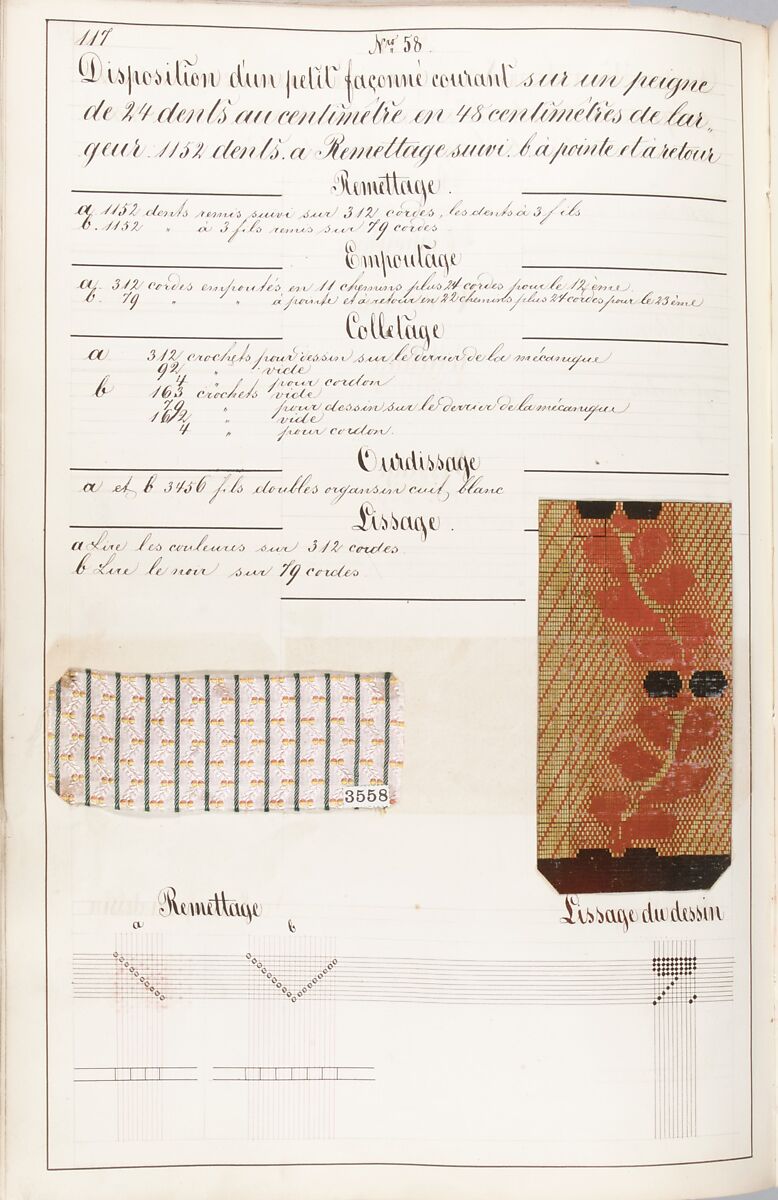 117
Nro 58.
Disposition d'un petit façonné courant sur un peigne
de 24 dents au centimètre en 48 centimètres de lar„
geur. 1152 dents. a Remettage suivi. b à pointe et à retour
Remettage.
a. 1152 dents remis suivi sur 312 cordes, les dents à 3 fils
b. 1152 „ à 3 fils remis sur 79 cordes
Empoutage
a. 312 cordes empoutés en 11 chemins plus 24 cordes pour le 12ème.
b. 79 „ „ à pointe et à retour en 22 chemins plus 24 cordes pour le 23ème
Colletage
a 312 crochets pour dessin sur le derrier de la mécanique
92 „ vide
4 „ pour cordon
b 163 crochets vide
79 „ pour dessin sur le derrier de la mécanique
162 „ vide
4 „ pour cordon.
Ourdissage
a et b 3456 fils doubles organsin cuit, blanc
Lissage.
a Lire les couleures sur 312 cordes
b Lire le noir sur 79 cordes
3558
Remettage
a b
Lissage du dessin